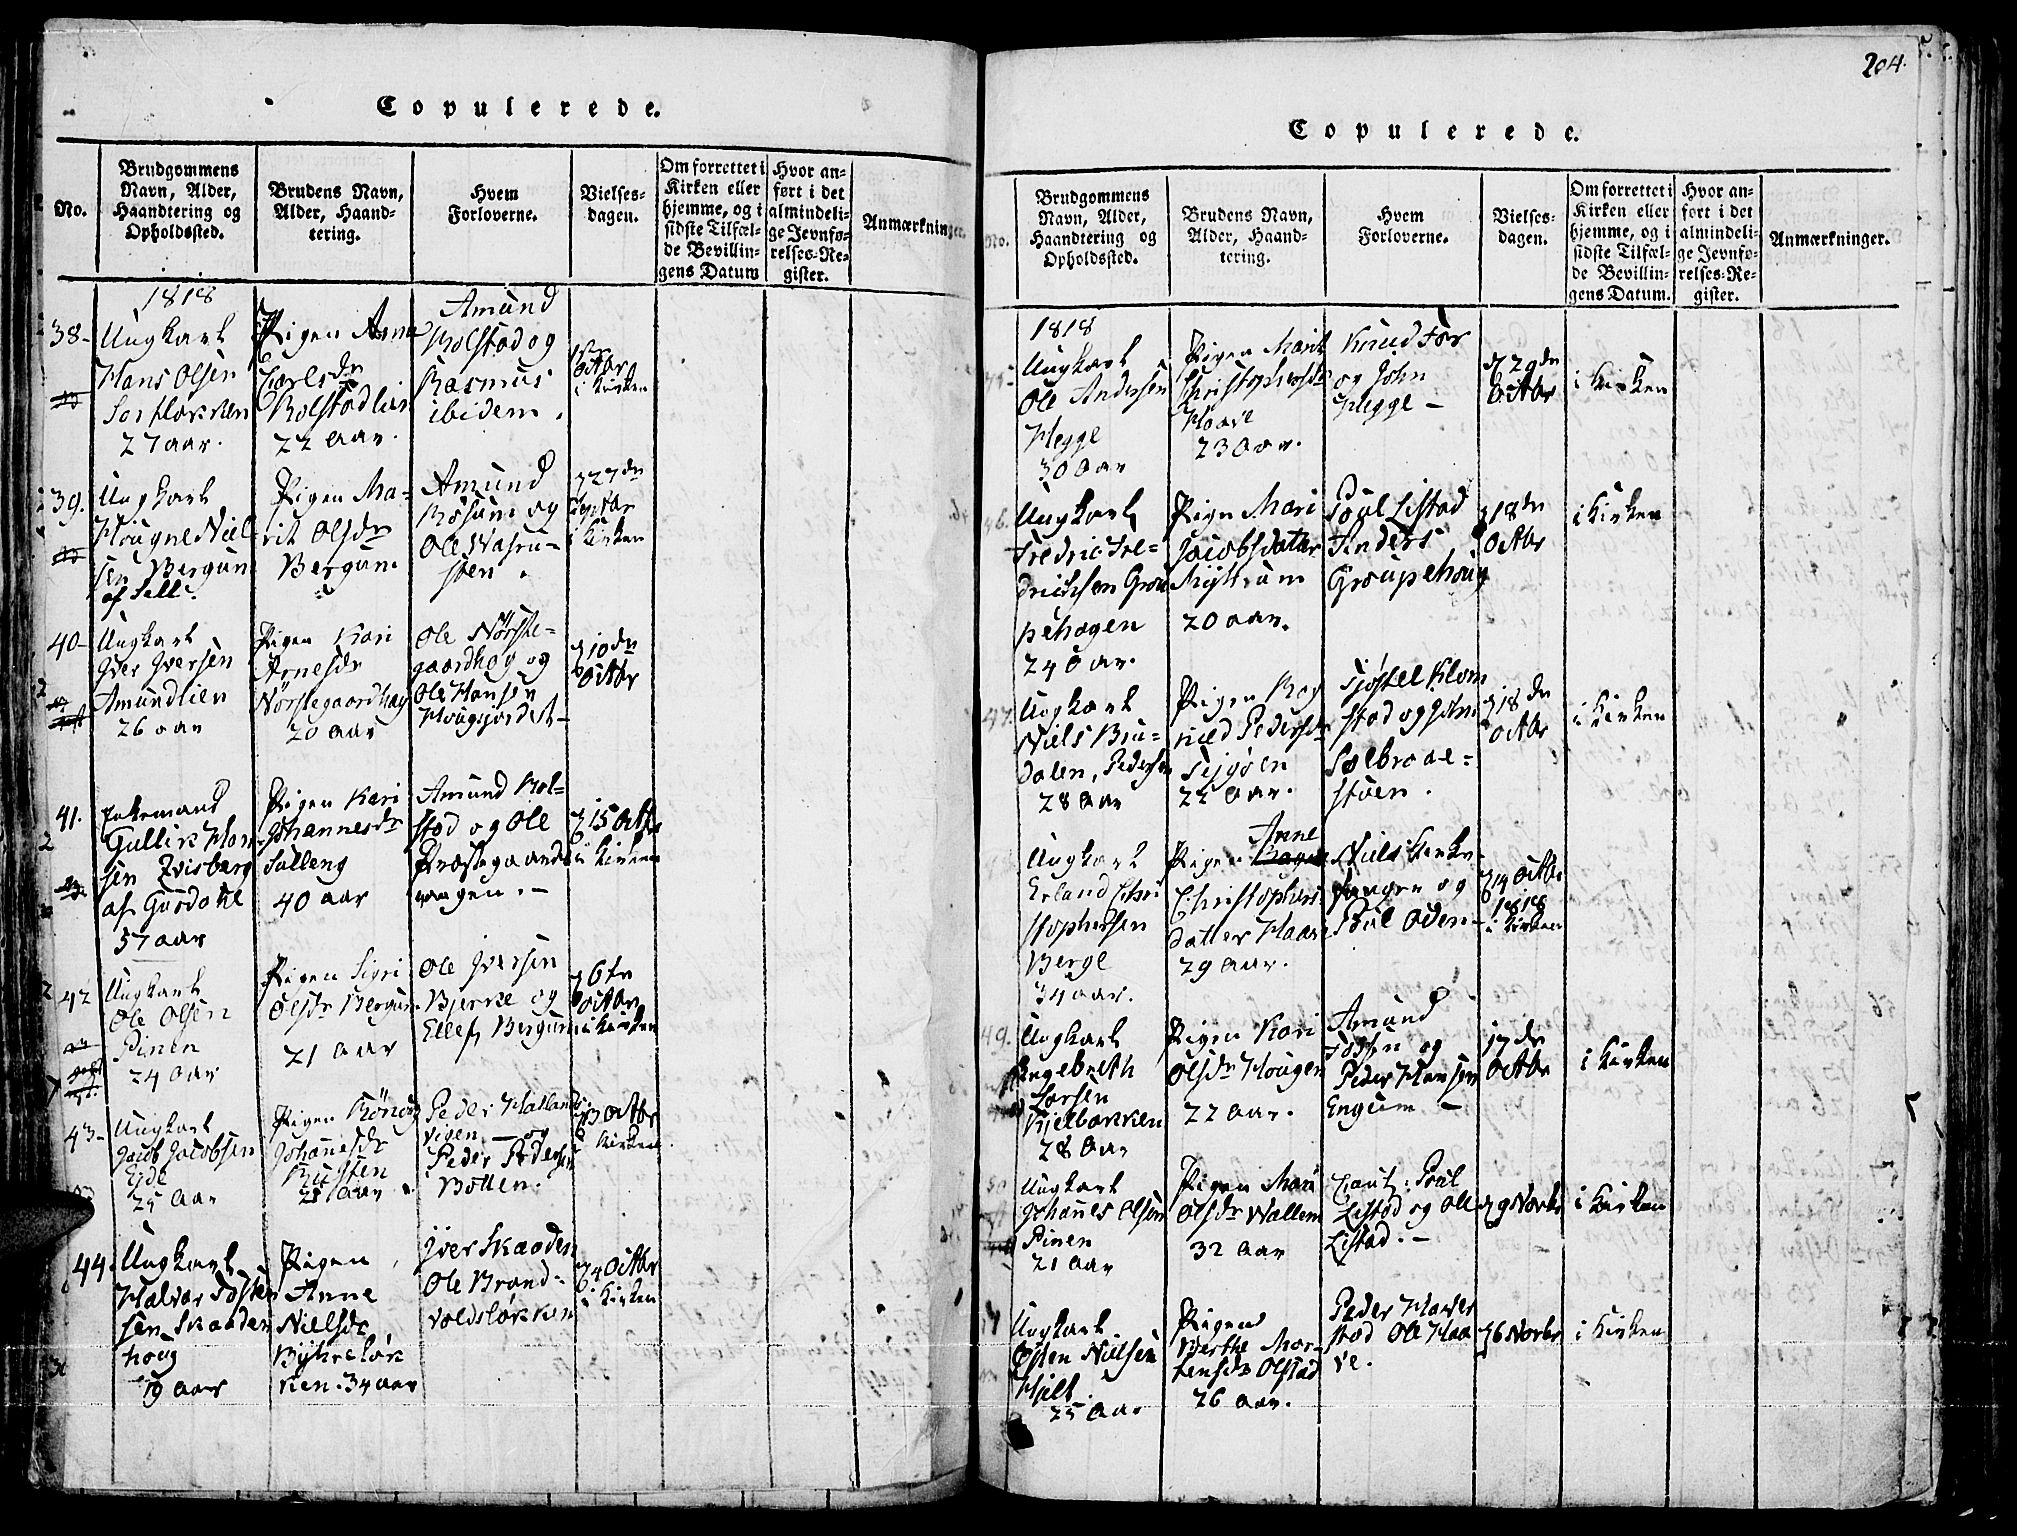 Copulerede.
No.
Brudgommens
Navn, Alder,
Haandtering og
Opholdssted.
Brudens Navn,
Alder, Haand-
tering.
Hvem
Forloverne.
Vielses-
dagen.
Om forrettet i
Kirken eller
hjemme, og i
sidste Tilfæl-
de Bevillin-
gens Datum
Hvor an-
ført i det
almindeli-
ge Jevnfø-
relses-Re-
gister.
Anmærkninger.
1818
38-
Ungkarl
Hans Olsen
27 aar.
Pigen Anna
Carlsdr
Kolstadlien
22 aar.
Amund
Kolstad og
Rasmus
ibidem.
Octbr
i Kirken
39.
Ungkarl
Hougne Niel-
sen Bergum
af Sell.
Pigen Ma-
rit Olsdr
Bergum
Amund
og
Ole
sten.
d 27de
i Kirken
40-
Ungkarl
Iver Iversen
Amundlien
26 aar
Pigen Kari
Arnesdr
Nørstegaardhag
20 aar
Ole Nørste-
gaardhog og
Ole Hansen
Hougsjordet-
d 10de
Octbr
41.
Enkemand
Gullik Han-
sen
af Gusdahl
57 aar
Pigen Kari
Johannesdr
Salleng
40 aar
Amund Kol-
stad og Ole
Præstegaards-
vangen.-
d 15 Octbr
i Kirken
42
Ungkarl
Ole Olsen
Pinen
24 aar
Pigen Sigri
Olsdr Bergum
21 aar
Ole Iversen
Bjerke og
Ellef Bergum
d 6te
Octbr
i Kirken
43-
Ungkarl
Jacob Jacobsen
Eide
25 aar
Pigen Rønoug
Johannesdr
Rusten
25 aar.
Peder
vigen - og
Peder Pedersen
Botten.
d 3 Octbr
i Kirken
44.
Ungkarl
Halvor
sen Skaaden
houg
19 aar
Pigen
Anne
Nielsdr
ken. 34 aar
Iver Skaaden
Ole Brand-
voldsløkken
d 4 Octbr
i Kirken
204.
Copulerede.
No.
Brudgommens
Navn, Alder,
Haandtering og
Opholdssted.
Brudens Navn,
Alder, Haand-
tering.
Hvem
Forloverne.
Vielses-
dagen.
Om forrettet i
Kirken eller
hjemme, og i
sidste Tilfæl-
de Bevillin-
gens Datum.
Hvor an-
ført i det
almindeli-
ge Jevnfø-
relses-Re-
gister.
Anmærkninger.
1818
45-
Ungkarl
Ole Andersen
Hegge
30 aar
Pigen Marit
Christophersdr
Haave
23 aar.
Knud Før
og John
Hegge -
d 29de
Octbr
i Kirken
46.
Ungkarl
Fredric Fre-
drichsen Grou
pehagen
24 aar.
Pigen Mari
Jacobsdatter
Myttrum
20 aar.
Poul Listad
Anders
Groupehoug
d 18de
Octbr
i Kirken
47.
Ungkarl
Niels Bru-
dalen, Pedersen
28 aar
Pigen Rag
nild Pedersdr
22 aar.
Kjøstel Klom
stad og John
Solbraae-
støen.
d 18de
Octbr
i Kirken
Ungkarl
Erland Chri
stophersen
Berge
34 aar.
Anne
Pigen
Christophers-
datter Haave
29 aar.
Niels
og
Poul Oden-
d 14 Octbr
1818
i Kirken
49.
Ungkarl
Engebreth
Larsen
Kjelbakken
28 aar
Pigen Kari
Olsdr Hougen
22 aar.
Amund
og
Peder Hansen
Engum -
17de
Octbr
i Kirken
50
Ungkarl
Johannes Olsen
Pinen
21 aar
Pigen Mari
Olsdr Wallem
32 aar
Poul
Listad og Ole
Listad. -
d 9 Novbr
i Kirken
Ungkarl
Østen Nielsen
25 aar
Pigen
Berthe Mor-
tensdr Olstad
26 aar.
Peder
stad Ole Haa
ve.
d 6 Novbr
i Kirken